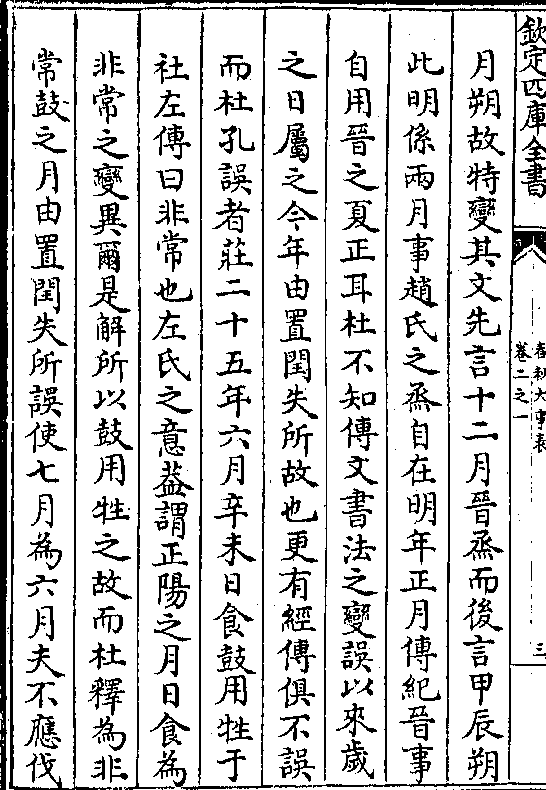 欽定四庫全書
春秋大事表
卷二之一
三
月朔故特變其文先言十二月晉烝而後言甲辰朔
此明係兩月事趙氏之烝自在明年正月傳紀晉事
自用晉之夏正耳杜不知傳文書法之變誤以來歲
之日屬之今年由置閏失所故也更有經傳俱不誤
而杜孔誤者莊二十五年六月辛未日食鼓用牲于
社左傳曰非常也左氏之意葢謂正陽之月日食為
非常之變異爾是解所以鼓用牲之故而杜釋為非
常鼓之月由置閏失所誤使七月為六月夫不應伐